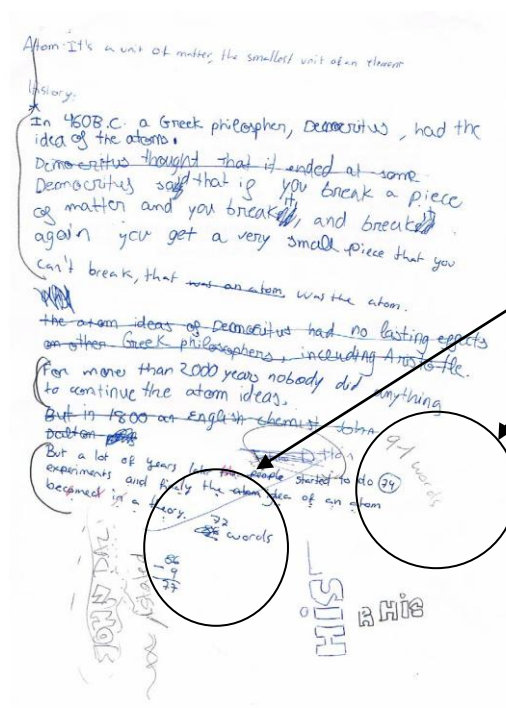 Atom: It's a unit of matter, the smallest unit of an element
History:
In 460 B.C. a Greek philospher, Democritus, had the
idea of the atoms.
Democritus thought that it ended at some
Democritus said that if you break a piece
of matter and you break it, and break it
again you get a very small piece that you
can't break, that was an atom, was the atom.
the atom ideas of Democritus had no lasting effects
on other Greek philosophers, including Aristotle.
For more than 2000 years nobody did anything
to continue the atom ideas.
But in 1800 an English chemist John
Dalton
But a lot of years later people started to do 74
experiments and finaly the atom idea of an atom
becomed in a theory.
91 words
72
words
86
- 9
77
JOHN DAL
HIS
R HIS